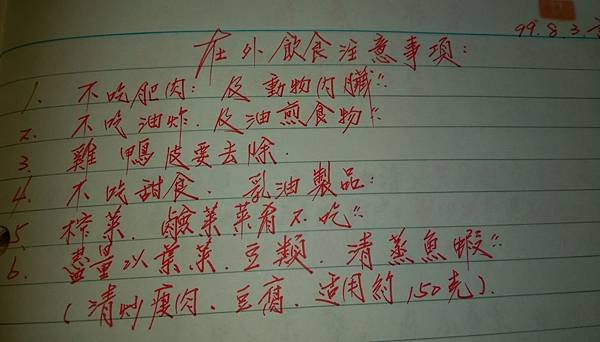 99.8.3
在外飲食注意事項:
1. 不吃肥肉: 及動物內臟:
2. 不吃油炸. 及油煎食物:
3. 雞鴨皮要去除.
4. 不吃甜食. 乳油製品:
5. 榨菜. 鹹菜菜肴不吃:
6. 盡量以葉菜. 豆類. 清蒸魚蝦:
(清炒瘦肉. 豆腐. 适用約150克).